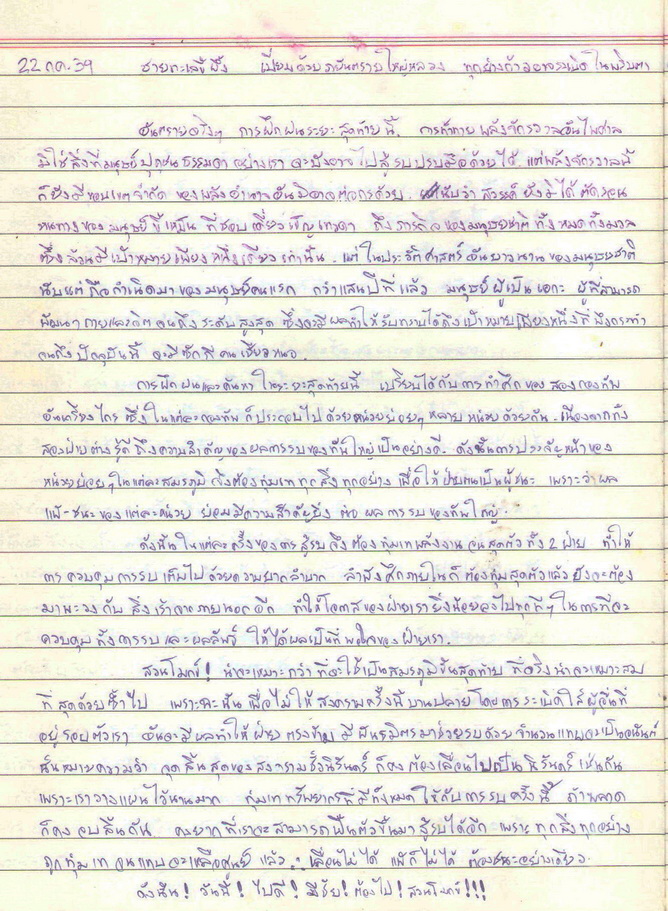 22 กค. 39 ชายทะเลขี้ผึ้ง เปี่ยมด้วยภยันตรายใหญ่หลวง ทุกย่างก้าวอาจระเบิดในพริบตา
อันตรายจริงๆ การฝึกฝนระยะสุดท้ายนี้. การท้าทายพลังจักรวาลอันไพศาล
มิใช่สิ่งที่มนุษย์ปุถุชนธรรมดาอย่างเรา จะบังอาจไปสู้รบปรบมือด้วยได้. แต่พลังจักรวาลนี้
ก็ยังมีขอบเขตจำกัด ของพลังอำนาจอัน ด้วย. นับว่า สวรรค์ ยังมิได้ตัดรอน
หนทางของมนุษย์ ที่ชอบ เดี่ยว ถึงภารกิจของมนุษยชาติทั้งหมดทั้งมวล
ซึ่งล้วนมีเป้าหมายเพียงหนึ่งเดียวเท่านั้น. แต่ในประวัติศาสตร์อันยาวนานของมนุษยชาติ
นับแต่ถือกำเนิดมาของมนุษย์คนแรก กว่าแสนปีที่แล้ว มนุษย์ผู้เป็นเอกะ ผู้ที่สามารถ
พัฒนากายและจิตจนถึงระดับสูงสุด ซึ่งจะมีผลทำให้รับทราบได้ถึงเป้าหมายเพียงหนึ่งที่พึงกระทำ
จนถึงปัจจุบันนี้ จะมีซักกี่คนเชียวหนอ.
การฝึกฝนและค้นหาในระยะสุดท้ายนี้ เปรียบได้กับการทำศึกของสองกองทัพ
อันเกรียงไกร ซึ่งในแต่ละกองทัพก็ประกอบไปด้วยหน่วยย่อยๆหลายหน่วยด้วยกัน. เนื่องจากทั้ง
สองฝ่ายต่างรู้ดีถึงความสำคัญของผลการรบของทัพใหญ่เป็นอย่างดี. ดังนั้นการประจัญหน้าของ
หน่วยย่อยๆในแต่ละสมรภูมิ จึงต้องทุ่มเททุกสิ่งทุกอย่าง เพื่อให้ฝ่ายตนเป็นผู้ชนะ เพราะว่าผล
แพ้-ชนะของแต่ละหน่วย ย่อมมีความสำคัญยิ่ง ต่อ ผลการรบของทัพใหญ่.
ดังนั้นในแต่ละครั้งของการสู้รบ จึงต้องทุ่มเทพลังงานจนสุดตัวทั้ง 2 ฝ่าย ทำให้
การควบคุมการรบเต็มไปด้วยความยากลำบาก ลำพังศึกภายในก็ต้องทุ่มสุดตัวแล้ว ยังจะต้อง
มาพะวงกับสิ่งเร้าจากภายนอกอีก ทำให้โอกาสของฝ่ายเรายิ่งน้อยลงไปทุกทีๆ ในการที่จะ
ควบคุมทั้งการรบและผลลัพธ์ ให้ได้ผลเป็นที่พอใจของฝ่ายเรา.
สวนโมกข์! น่าจะเหมาะกว่าที่จะใช้เป็นสมรภูมิขั้นสุดท้าย ที่จริงน่าจะเหมาะสม
ที่สุดด้วยซ้ำไป เพราะฉะนั้นเพื่อไม่ให้สงครามครั้งนี้บานปลายโดยการระเบิดใส่ผู้อื่นที่
อยู่รอบตัวเรา อันจะมีผลทำให้ฝ่ายตรงข้าม มีพันธมิตรมาช่วยรบด้วยจำนวนแทบจะเป็นอนันต์
นั่นหมายความว่า จุดสิ้นสุดของสงครามชั่วนิรันดร์ ก็คงต้องเลื่อนไปเป็นนิรันดร์เช่นกัน
เพราะเราวางแผนไว้นานมาก ทุ่มเททรัพยากรที่มีทั้งหมดใช้กับการรบครั้งนี้ ถ้าพลาด
ก็คงจบสิ้นกัน คงยากที่เราจะสามารถฟื้นตัวขึ้นมาสู้รบได้อีก เพราะทุกสิ่งทุกอย่าง
ถูกทุ่มเทจนแทบจะเหลือศูนย์แล้ว ∴ เลื่อนไม่ได้ แพ้ก็ไม่ได้ ต้องชนะอย่างเดียว.
ดังนั้น! วันนี้! ไปดี! มีชัย! ต้องไป! สวนโมกข์!!!